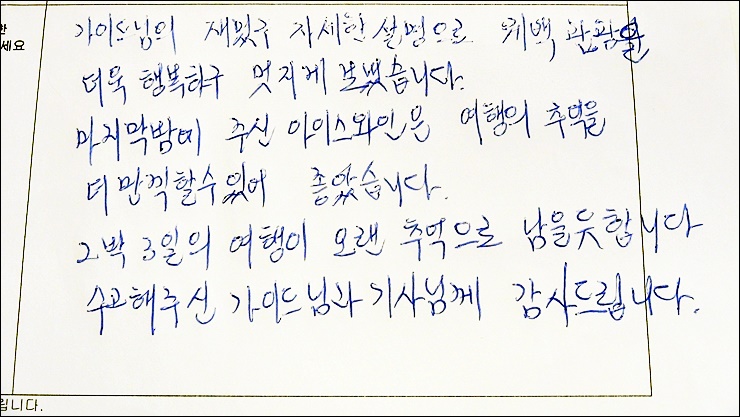 한
세요
가이드님의 재밌구 자세한 설명으로 퀘백 관광을
더욱 행복하구 멋지게 보냈습니다.
마지막밤에 주신 아이스와인은 여행의 추억을
더 만끽할수있어 좋았습니다.
2박 3일의 여행이 오랜 추억으로 남을듯합니다
수고해주신 가이드님과 기사님께 감사드립니다.
립니다.